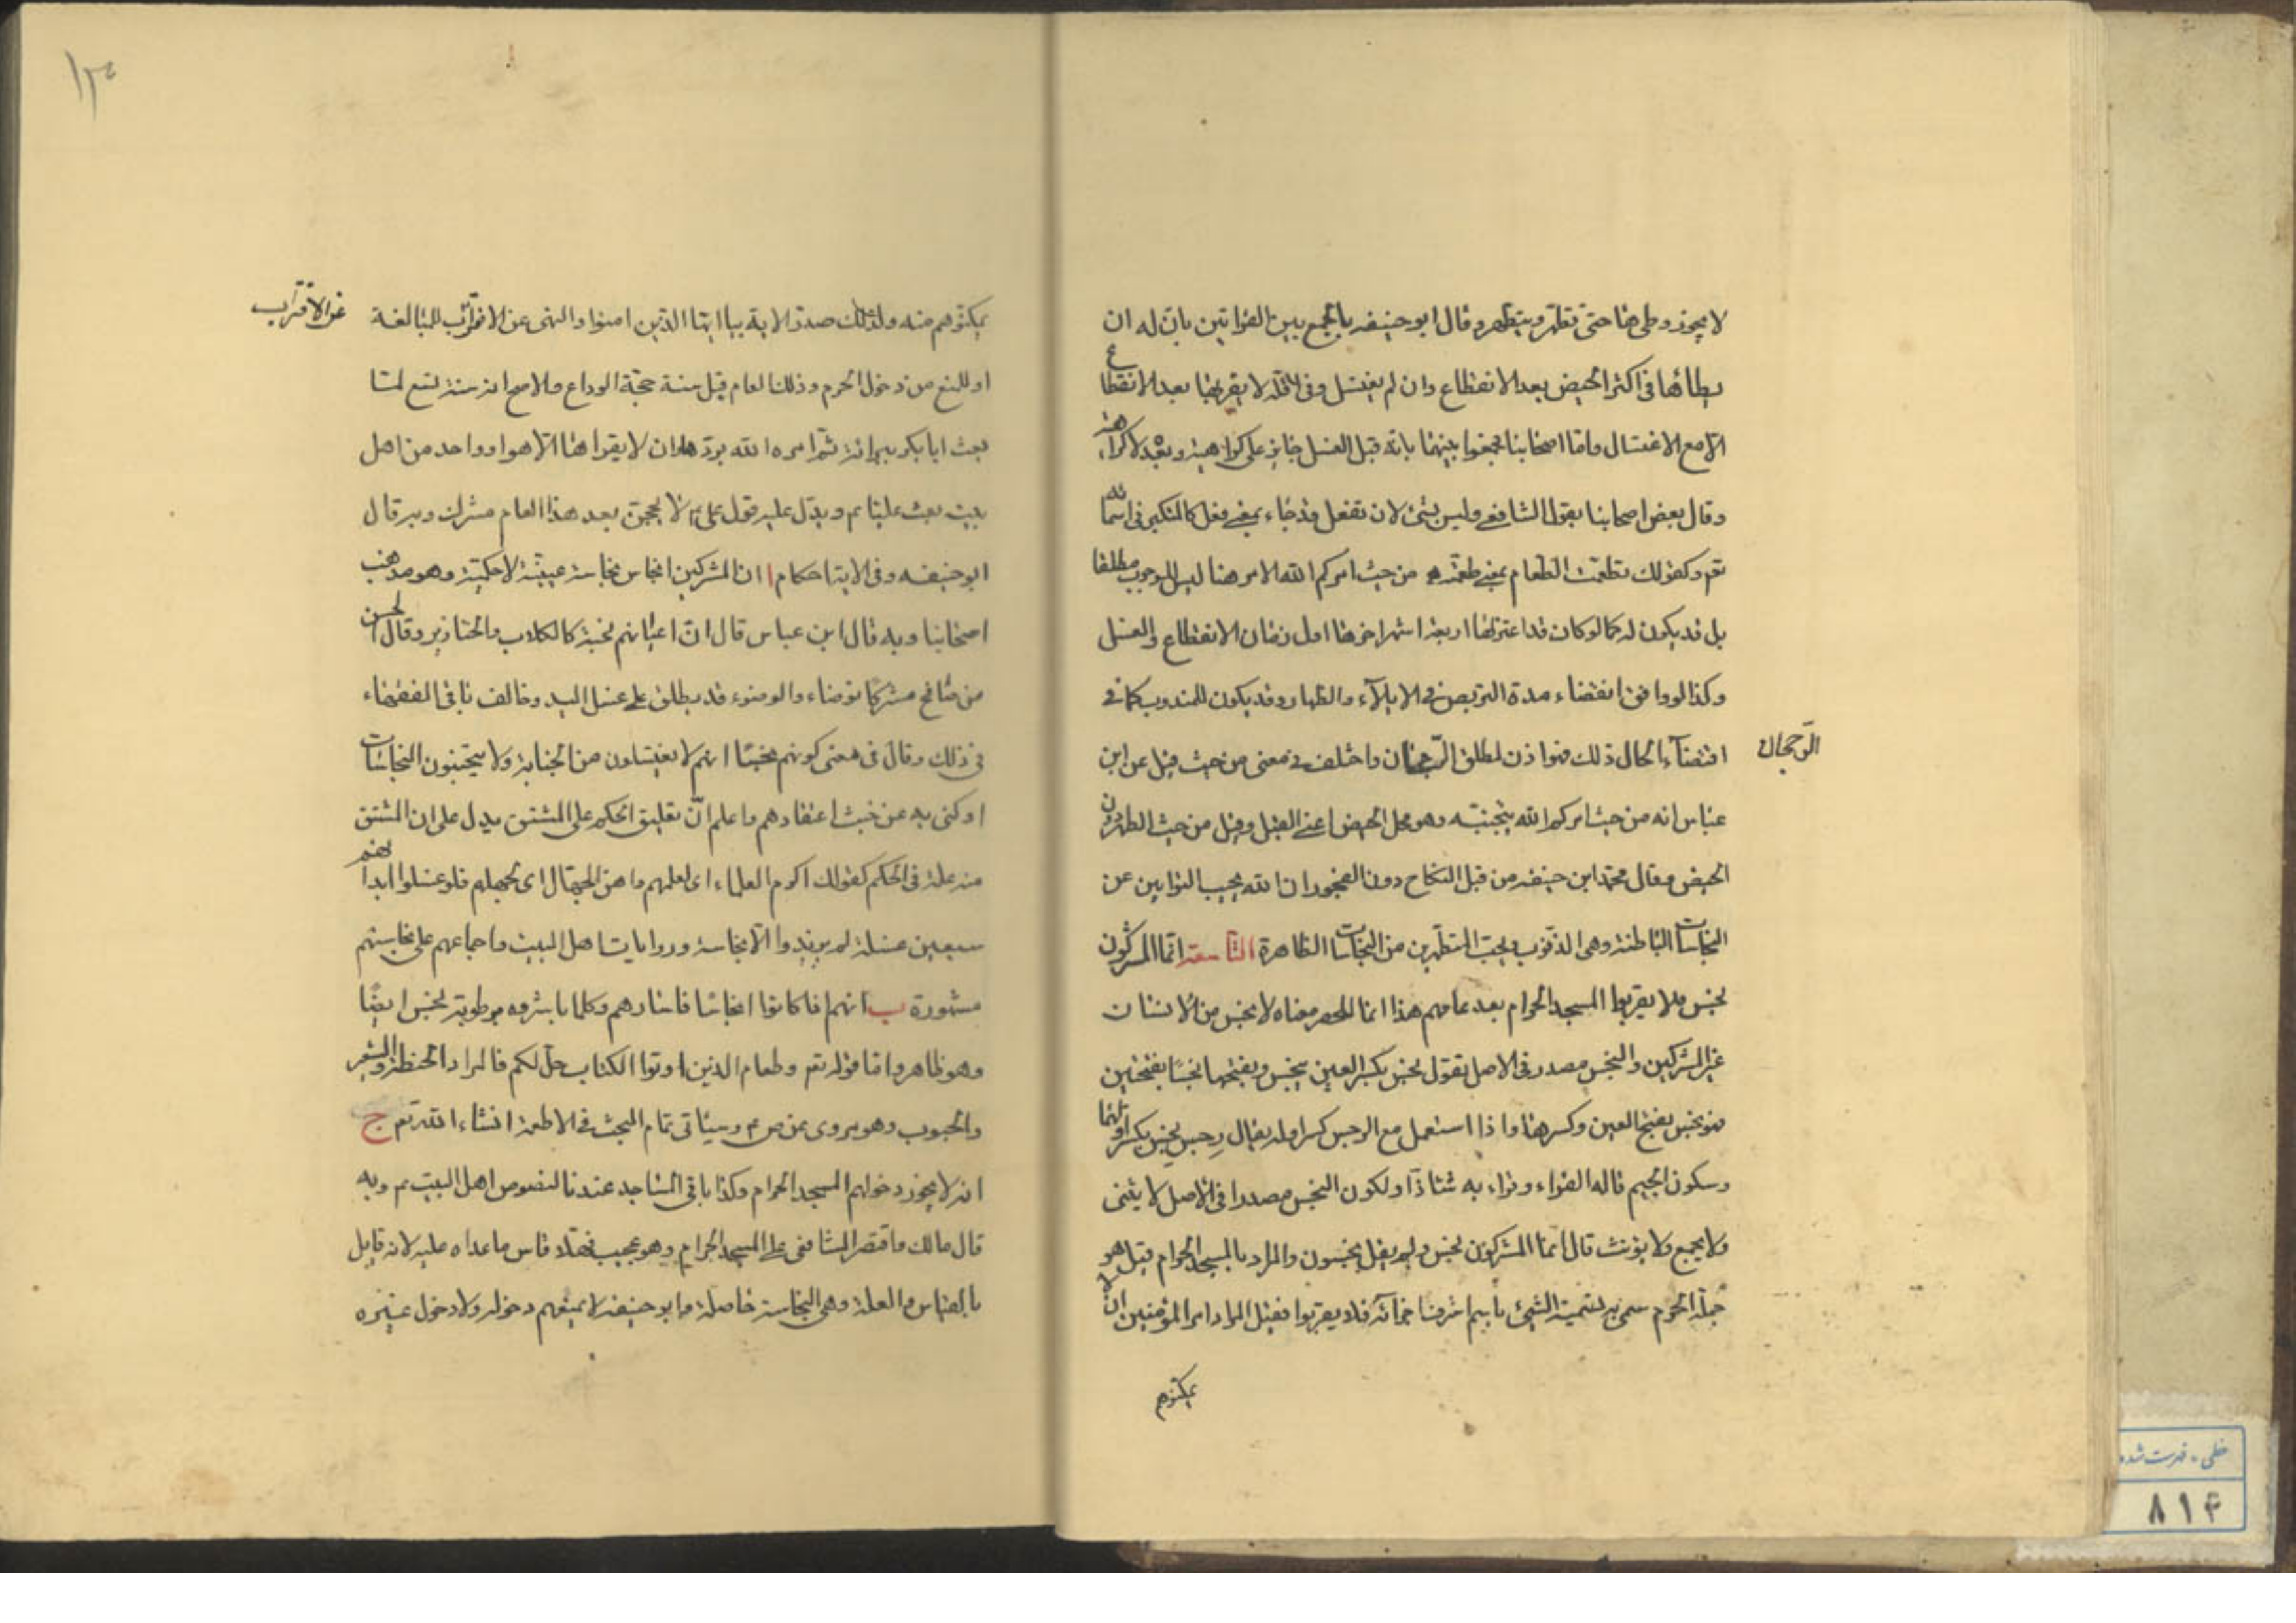 لا يجوز وطى‌ها حتى تطهر ويتطهر وقال ابو حنيفه بالجمع بين القرائتين بان له ان
يطأها فى اكثر الحيض بعد الانقطاع وان لم يغتسل وفى اقله لا يقربها بعد الانقطاع
الا مع الاغتسال واما اصحابنا فجمعوا بينهما بانه قبل الغسل جايز على كراهية وبعده لا كراهة
وقال بعض اصحابنا بقول الشافعى وليس بشئ لان تفعل قد جاء بمعنى فعل كالمتكبر فى اسمائه
تع وكقولك تطعمت الطعام بمعنى طعمته من حيث امركم الله الامر هنا ليس للوجوب مطلقا
بل قد يكون له كما لو كان قد اعتزلها اربعة اشهر اخرها اول زمان الانقطاع والغسل
وكذا لو وافق انقضاء مدة التربص فى الايلاء والظهار وقد يكون للمندوب كما فى
اقتضاء الحال ذلك فهو اذن لمطلق الرجحان واختلف فى معنى من حيث فقيل عن ابن
الرجحان
عباس انه من حيث امركم الله بتجنبه وهو محل الحيض اعنى القبل وقيل من حيث الطهر دون
الحيض وقال محمد ابن حنيفه من قبل النكاح دون الفجور ان الله يحب التوابين عن
النجاسات الباطنة وهى الذنوب ويحب المتطهرين من النجاسات الظاهرة التاسعة انما المشركون
نجس فلا يقربوا المسجد الحرام بعد عامهم هذا انما للحصر معناه لا نجس من الانسان
غير المشركين والنجس مصدر فى الاصل تقول نجس بكسر العين ينجس وبفتحها نجسا بفتحتين
فهو نجس بفتح العين وكسرها واذا استعمل مع الرجس كسر اوله يقال رجس نجس بكسر اولهما
وسكون الجيم قاله الفراء وقراء به شاذا ولكون النجس مصدرا فى الاصل لا يثنى
ولا يجمع ولا يؤنث قال انما المشركون نجس ولم يقل نجسون والمراد بالمسجد الحرام قيل هو
جملة الحرم سمى به تسمية الشئ باسم اشرف اجزائه فلا يقربوا فقيل المراد امر المؤمنين ان لا
يمكنوهم
١٣
يمكنوهم منه ولذلك صدر الاية بيا ايها الذين امنوا والنهى عن الاقتراب للمبالغة
عن الاقتراب
او للمنع من دخول الحرم وذلك العام قيل سنة حجة الوداع والاصح انه سنة تسع لما
بعث ابابكر ببراءة ثم امره الله برده وان لا يقراها الا هو او واحد من اهل
بيته بعث عليا م ويدل عليه قول على م الا لا يحجن بعد هذا العام مشرك وبه قال
ابو حنيفه وفى الاية احكام ا ان المشركين انجاس نجاسة عينية لا حكمية وهو مذهب
اصحابنا وبه قال ابن عباس قال ان اعيانهم نجسة كالكلاب والخنازير وقال الحسن
من صافح مشركا توضاء والوضوء قد يطلق على غسل اليد وخالف باقى الفقهاء
فى ذلك وقال فى معنى كونهم نجسا انهم لا يغتسلون من الجنابة ولا يجتنبون النجاسات
او كنى به عن خبث اعتقادهم واعلم ان تعليق الحكم على المشتق يدل على ان المشتق
منه علة فى الحكم كقولك اكرم العلماء اى لعلمهم واهن الجهال اى لجهلهم فلو غسلوا ابدانهم
سبعين غسلة لم يزيدوا الا نجاسة وروايات اهل البيت واجماعهم على نجاستهم
مشهورة ب انهم اذا كانوا انجاسا فاسارهم وكلما باشروه برطوبة نجس ايضا
وهو ظاهر واما قوله تع وطعام الذين اوتوا الكتاب حل لكم فالمراد الحنطة والشعير
والحبوب وهو مروى عن ص م وسياتى تمام البحث فى الاطعمة انشاء الله تع ج
انه لا يجوز دخولهم المسجد الحرام وكذا باقى المساجد عندنا لنصوص اهل البيت م وبه
قال مالك واقتصر الشافعى على المسجد الحرام وهو عجيب فهلا قاس ما عداه عليه لانه قايل
بالقياس والعلة وهى النجاسة حاصلة وابو حنيفة لا يمنعهم دخوله ولا دخول غيره
خطى ـ فهرست شده
٨١٤